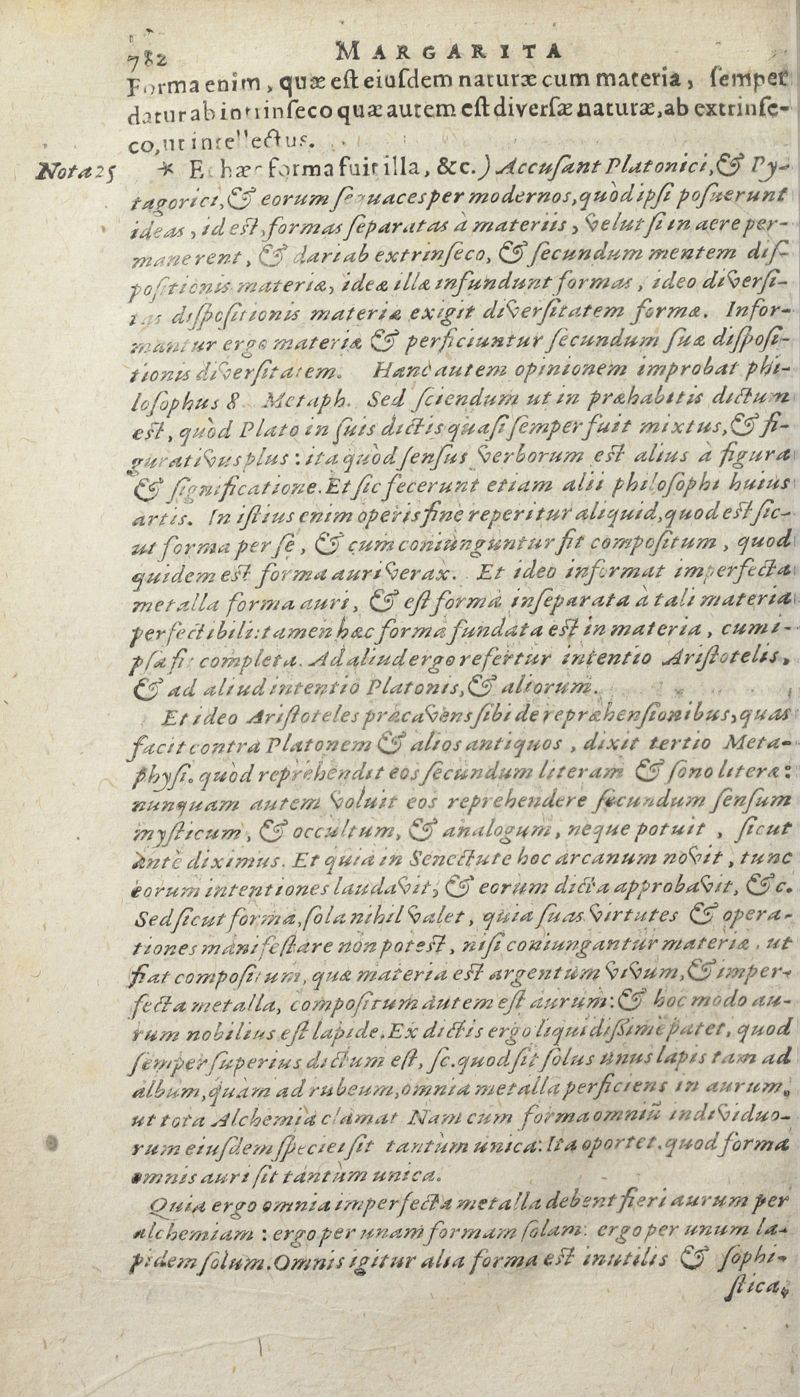 782 MARGARITA
Forma enim, quæ est eiusdem naturæ cum materia, semper
datur ab intrinseco quæ autem est diversæ naturæ, ab extrinse-
co, ut intellectus.
Nota 25 * Et hæc forma fuit illa, &c.) Accusant Platonici, & Py-
tagorici, & eorum sequaces per modernos, quòd ipsi posuerunt
ideas, id est, formas separatas à materiis, velut si in aere per-
manerent, & dari ab extrinseco, & secundum mentem dis-
positionis materiæ, ideæ illæ infundunt formas, ideo diversi-
tas dispositionis materiæ exigit diversitatem formæ. Infor-
mantur ergo materiæ & perficiuntur secundum suæ disposi-
tionis diversitatem. Hanc autem opinionem improbat phi-
losophus 8. Metaph. Sed sciendum ut in præhabitis dictum
est, quòd Plato in suis dictis quasi semper fuit mixtus, & fi-
gurativus plus: ita quòd sensus verborum est alius à figura
& significatione. Et sic fecerunt etiam alii philosophi huius
artis. In istius enim operis fine reperitur aliquid, quod est sic-
ut forma per se, & cum coniunguntur fit compositum, quod
quidem est forma auri verax. Et ideo informat imperfecta
metalla forma auri, & est forma inseparata à tali materia
perfectibili: tamen hæc forma fundata est in materia, cum i-
psa sit completa. Ad aliud ergo refertur intentio Aristotelis,
& ad aliud intentio Platonis, & aliorum.
Et ideo Aristoteles præcavens sibi de repræhensionibus, quas
facit contra Platonem & alios antiquos, dixit tertio Meta-
physi. quòd reprehendit eos secundum literam & sono literæ:
nunquam autem voluit eos reprehendere secundum sensum
mysticum, & occultum, & analogum, neque potuit, sicut
ante diximus. Et quia in Senectute hoc arcanum novit, tunc
eorum intentiones laudavit, & eorum dicta approbavit, &c.
Sed sicut forma, sola nihil valet, quia suas virtutes & opera-
tiones manifestare non potest, nisi coniungantur materiæ, ut
fiat compositum, quæ materia est argentum vivum, & imper-
fecta metalla, compositum autem est aurum: & hoc modo au-
rum nobilius est lapide. Ex dictis ergo liquidissimè patet, quod
semper superius dictum est, sc. quod sit solus unus lapis tam ad
album, quàm ad rubeum, omnia metalla perficiens in aurum,
ut tota Alchemia clamat Nam cum forma omniũ individuo-
rum eiusdem speciei sit tantùm unica: Ita oportet, quod forma
omnis auri sit tantùm unica.
Quia ergo omnia imperfecta metalla debent fieri aurum per
alchemiam: ergo per unam formam solam: ergo per unum la-
pidem solum. Omnis igitur alia forma est inutilis & sophi-
stica,